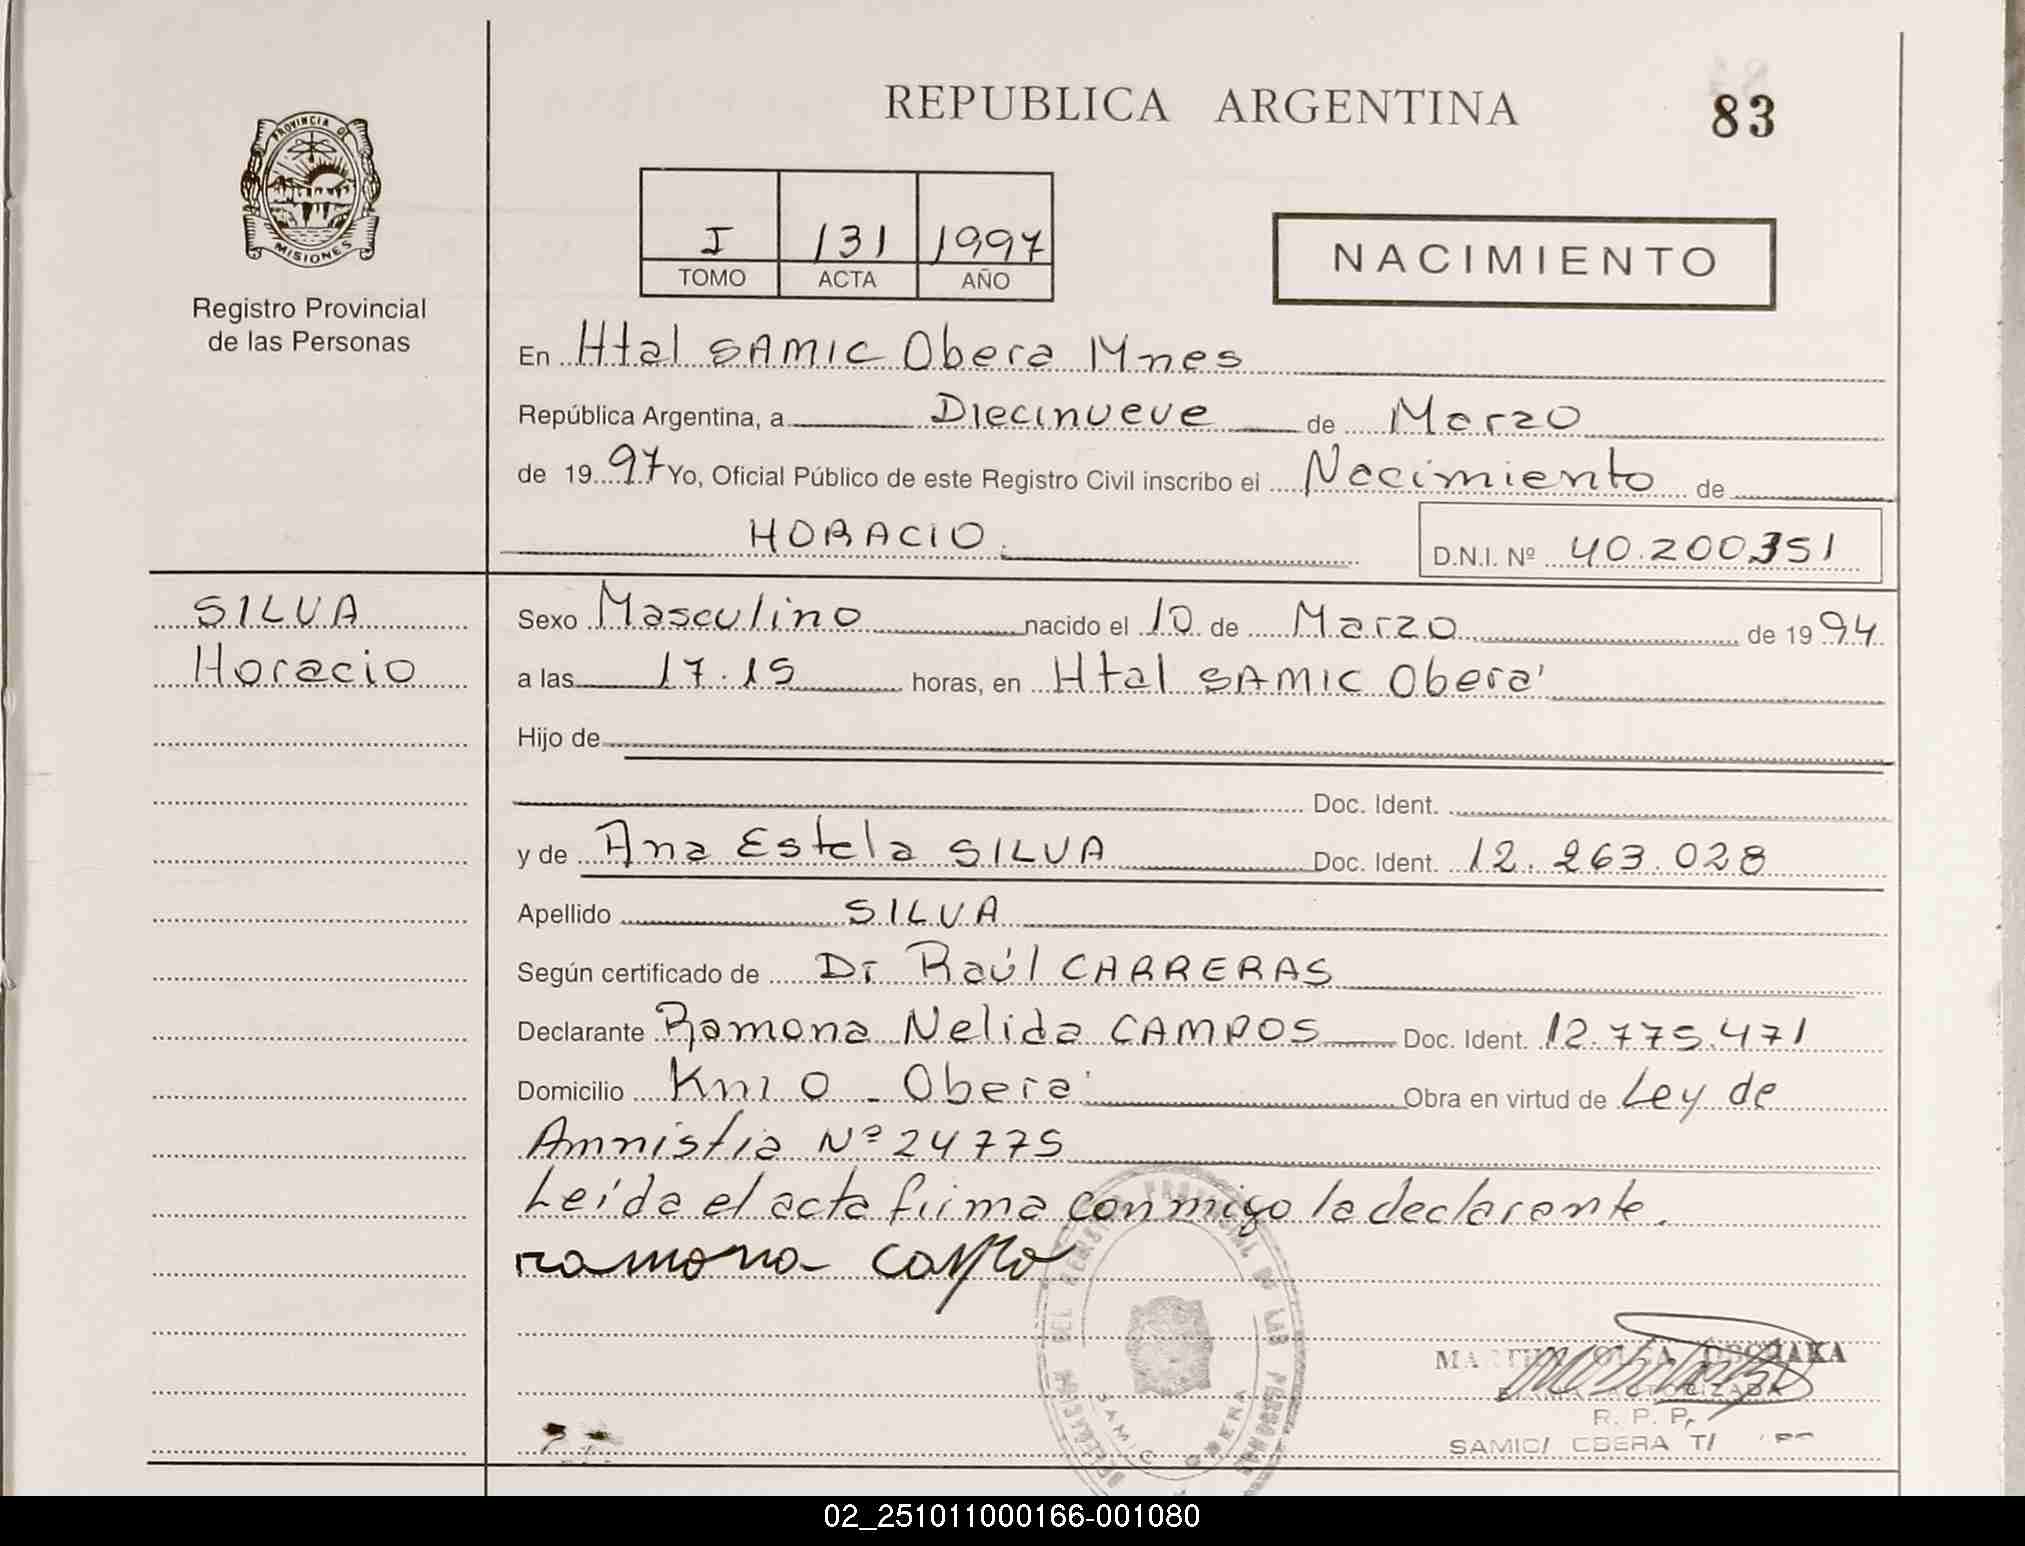 REPUBLICA ARGENTINA
83
PROVINCIA DE
MISIONES
Registro Provincial
de las Personas
I 131 1997
TOMO ACTA AÑO
NACIMIENTO
En Htal SAMIC Obera Mnes
República Argentina, a Diecinueve de Marzo
de 19 97 Yo, Oficial Público de este Registro Civil inscribo el Nacimiento de
HORACIO.
D.N.I. Nº 40.200351
SILVA
Horacio
Sexo Masculino nacido el 10 de Marzo de 19 94
a las 17.15 horas, en Htal SAMIC Oberá
Hijo de
Doc. Ident.
y de Ana Estela SILVA Doc. Ident. 12.263.028
Apellido SILVA
Según certificado de Dr Raúl CARRERAS
Declarante Ramona Nelida CAMPOS Doc. Ident. 12.775.471
Domicilio Km 0 - Oberá Obra en virtud de Ley de
Amnistia Nº 24775
Leída el acta firma conmigo la declarante.
ramona
DEL REGISTRO PROVINCIAL DE LAS PERSONAS
SAMIC OBERA
OLGA
AUTORIZADA
R. P. P.
SAMIC/ OBERA
02_251011000166-001080